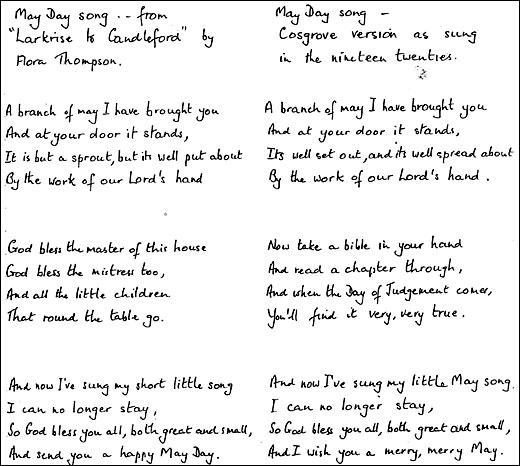 May Day song -- from
"Larkrise to Candleford" by
Flora Thompson.
A branch of may I have brought you
And at your door it stands,
It is but a sprout, but its well put about
By the work of our Lord's hand
God bless the master of this house
God bless the mistress too,
And all the little children
That round the table go.
And now I've sung my short little song
I can no longer stay,
So God bless you all, both great and small,
And send you a happy May Day.
May Day song -
Cosgrove version as sung
in the nineteen twenties.
A branch of may I have brought you
And at your door it stands,
Its well set out, and its well spread about
By the work of our Lord's hand.
Now take a bible in your hand
And read a chapter through,
And when the Day of Judgement comes,
You'll find it very, very true.
And now I've sung my little May song.
I can no longer stay,
So God bless you all, both great and small,
And I wish you a merry, merry May.